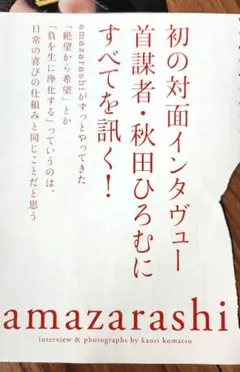 初の対面インタヴュー
首謀者・秋田ひろむに
すべてを訊く！
amazarashiがずっとやってきた
「絶望から希望」とか
「負を生に浄化する」っていうのは、
日常の喜びの仕組みと同じことだと思う
amazarashi
interview & photographs by kaori komatsu